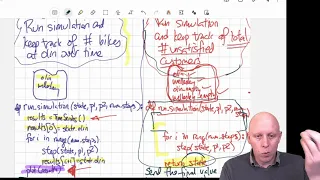 Run simulation and
keep track of # bikes
at olin over time
olin
wellesley
run_simulation(state, p1, p2, num_steps):
results = TimeSeries()
results[0] = state.olin
for i in range(num_steps):
step(state, p1, p2)
results[i+1] = state.olin
plot(results)
Run simulation
and keep track of total
# unsatisfied
customers
olin
wellesley
olin_empty
wellesley_empty
run_simulation(state, p1, p2,
for i in range(num_steps):
step(state, p1, p2)
return state
Send the final value